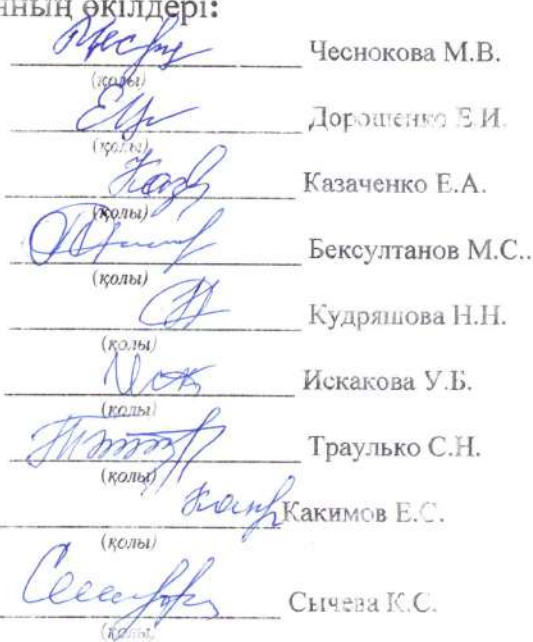 өкілдері:
Чеснокова М.В.
(қолы)
Дорошенко Е.И.
(қолы)
Казаченко Е.А.
(қолы)
Бексултанов М.С..
(қолы)
Кудряшова Н.Н.
(қолы)
Искакова У.Б.
(қолы)
Траулько С.Н.
(қолы)
Какимов Е.С.
(қолы)
Сычева К.С.
(қолы)